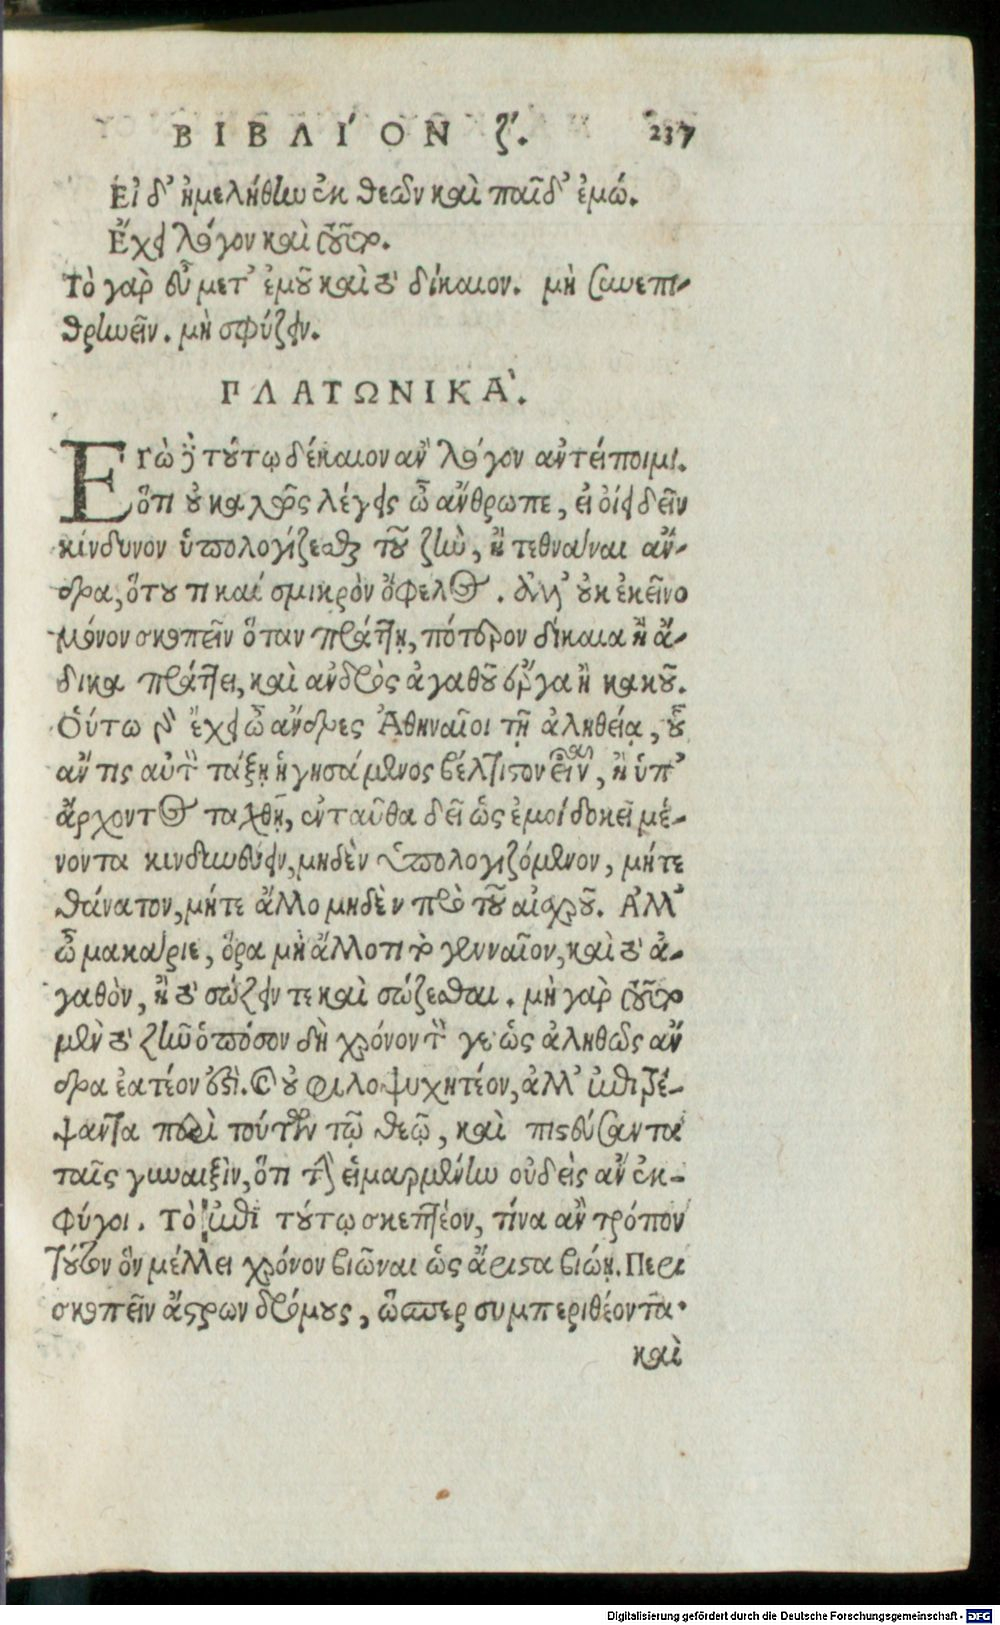 ΒΙΒΛΙ´ΟΝ ζ´. 237
Εἰ δ' ἠμελήθην ἐκ θεῶν καὶ παῖδ' ἐμώ.
Ἔχει λόγον καὶ τοῦτο.
Τὸ γὰρ εὖ μετ' ἐμοῦ καὶ τὸ δίκαιον. μὴ συνεπι-
θρηνεῖν. μὴ σφύζειν.
ΠΛΑΤΩΝΙΚΑ`.
Εγὼ δὲ τούτῳ δίκαιον ἂν λόγον ἀντείποιμι.
ὅτι οὐ καλῶς λέγεις ὦ ἄνθρωπε, εἰ οἴει δεῖν
κίνδυνον ὑπολογίζεσθαι τοῦ ζῆν, ἢ τεθνάναι ἄν-
δρα, ὅτου τι καί σμικρὸν ὄφελος. ἀλλ' οὐκ ἐκεῖνο
μόνον σκοπεῖν ὅταν πράττῃ, πότερον δίκαια ἢ ἄ-
δικα πράττει, καὶ ἀνδρὸς ἀγαθοῦ ἔργα ἢ κακοῦ.
Οὕτω γὰρ ἔχει ὦ ἄνδρες Ἀθηναῖοι τῇ ἀληθείᾳ, οὗ
ἄν τις αὑτὸν τάξῃ ἡγησάμενος βέλτιστον εἶναι, ἢ ὑπ'
ἄρχοντος ταχθῇ, ἐνταῦθα δεῖ ὡς ἐμοί δοκεῖ μέ-
νοντα κινδυνεύειν, μηδὲν ὑπολογιζόμενον, μήτε
θάνατον, μήτε ἄλλο μηδὲν πρὸ τοῦ αἰσχροῦ. Ἀλλ'
ὦ μακάριε, ὅρα μὴ ἄλλο τι τὸ γενναῖον, καὶ τὸ ἀ-
γαθὸν, ἢ τὸ σώζειν τε καὶ σώζεσθαι. μὴ γὰρ τοῦτο
μὲν τὸ ζῆν ὁπόσον δὴ χρόνον τόν γε ὡς ἀληθῶς ἄν
δρα ἐατέον ἐστὶ. καὶ οὐ φιλοψυχητέον, ἀλλ' ἐπιτρέ-
ψαντα περὶ τούτων τῷ θεῷ, καὶ πιστεύσαντα
ταῖς γυναιξὶν, ὅτι τὴν εἱμαρμένην οὐδεὶς ἂν ἐκ-
φύγοι. Τὸ ἐπὶ τούτῳ σκεπτέον, τίνα ἂν τρόπον
τοῦτον ὃν μέλλει χρόνον βιῶναι ὡς ἄριστα βιώῃ. Περι
σκοπεῖν ἄστρων δρόμους, ὥσπερ συμπεριθέοντα·
καὶ
Digitalisierung gefördert durch die Deutsche Forschungsgemeinschaft - DFG